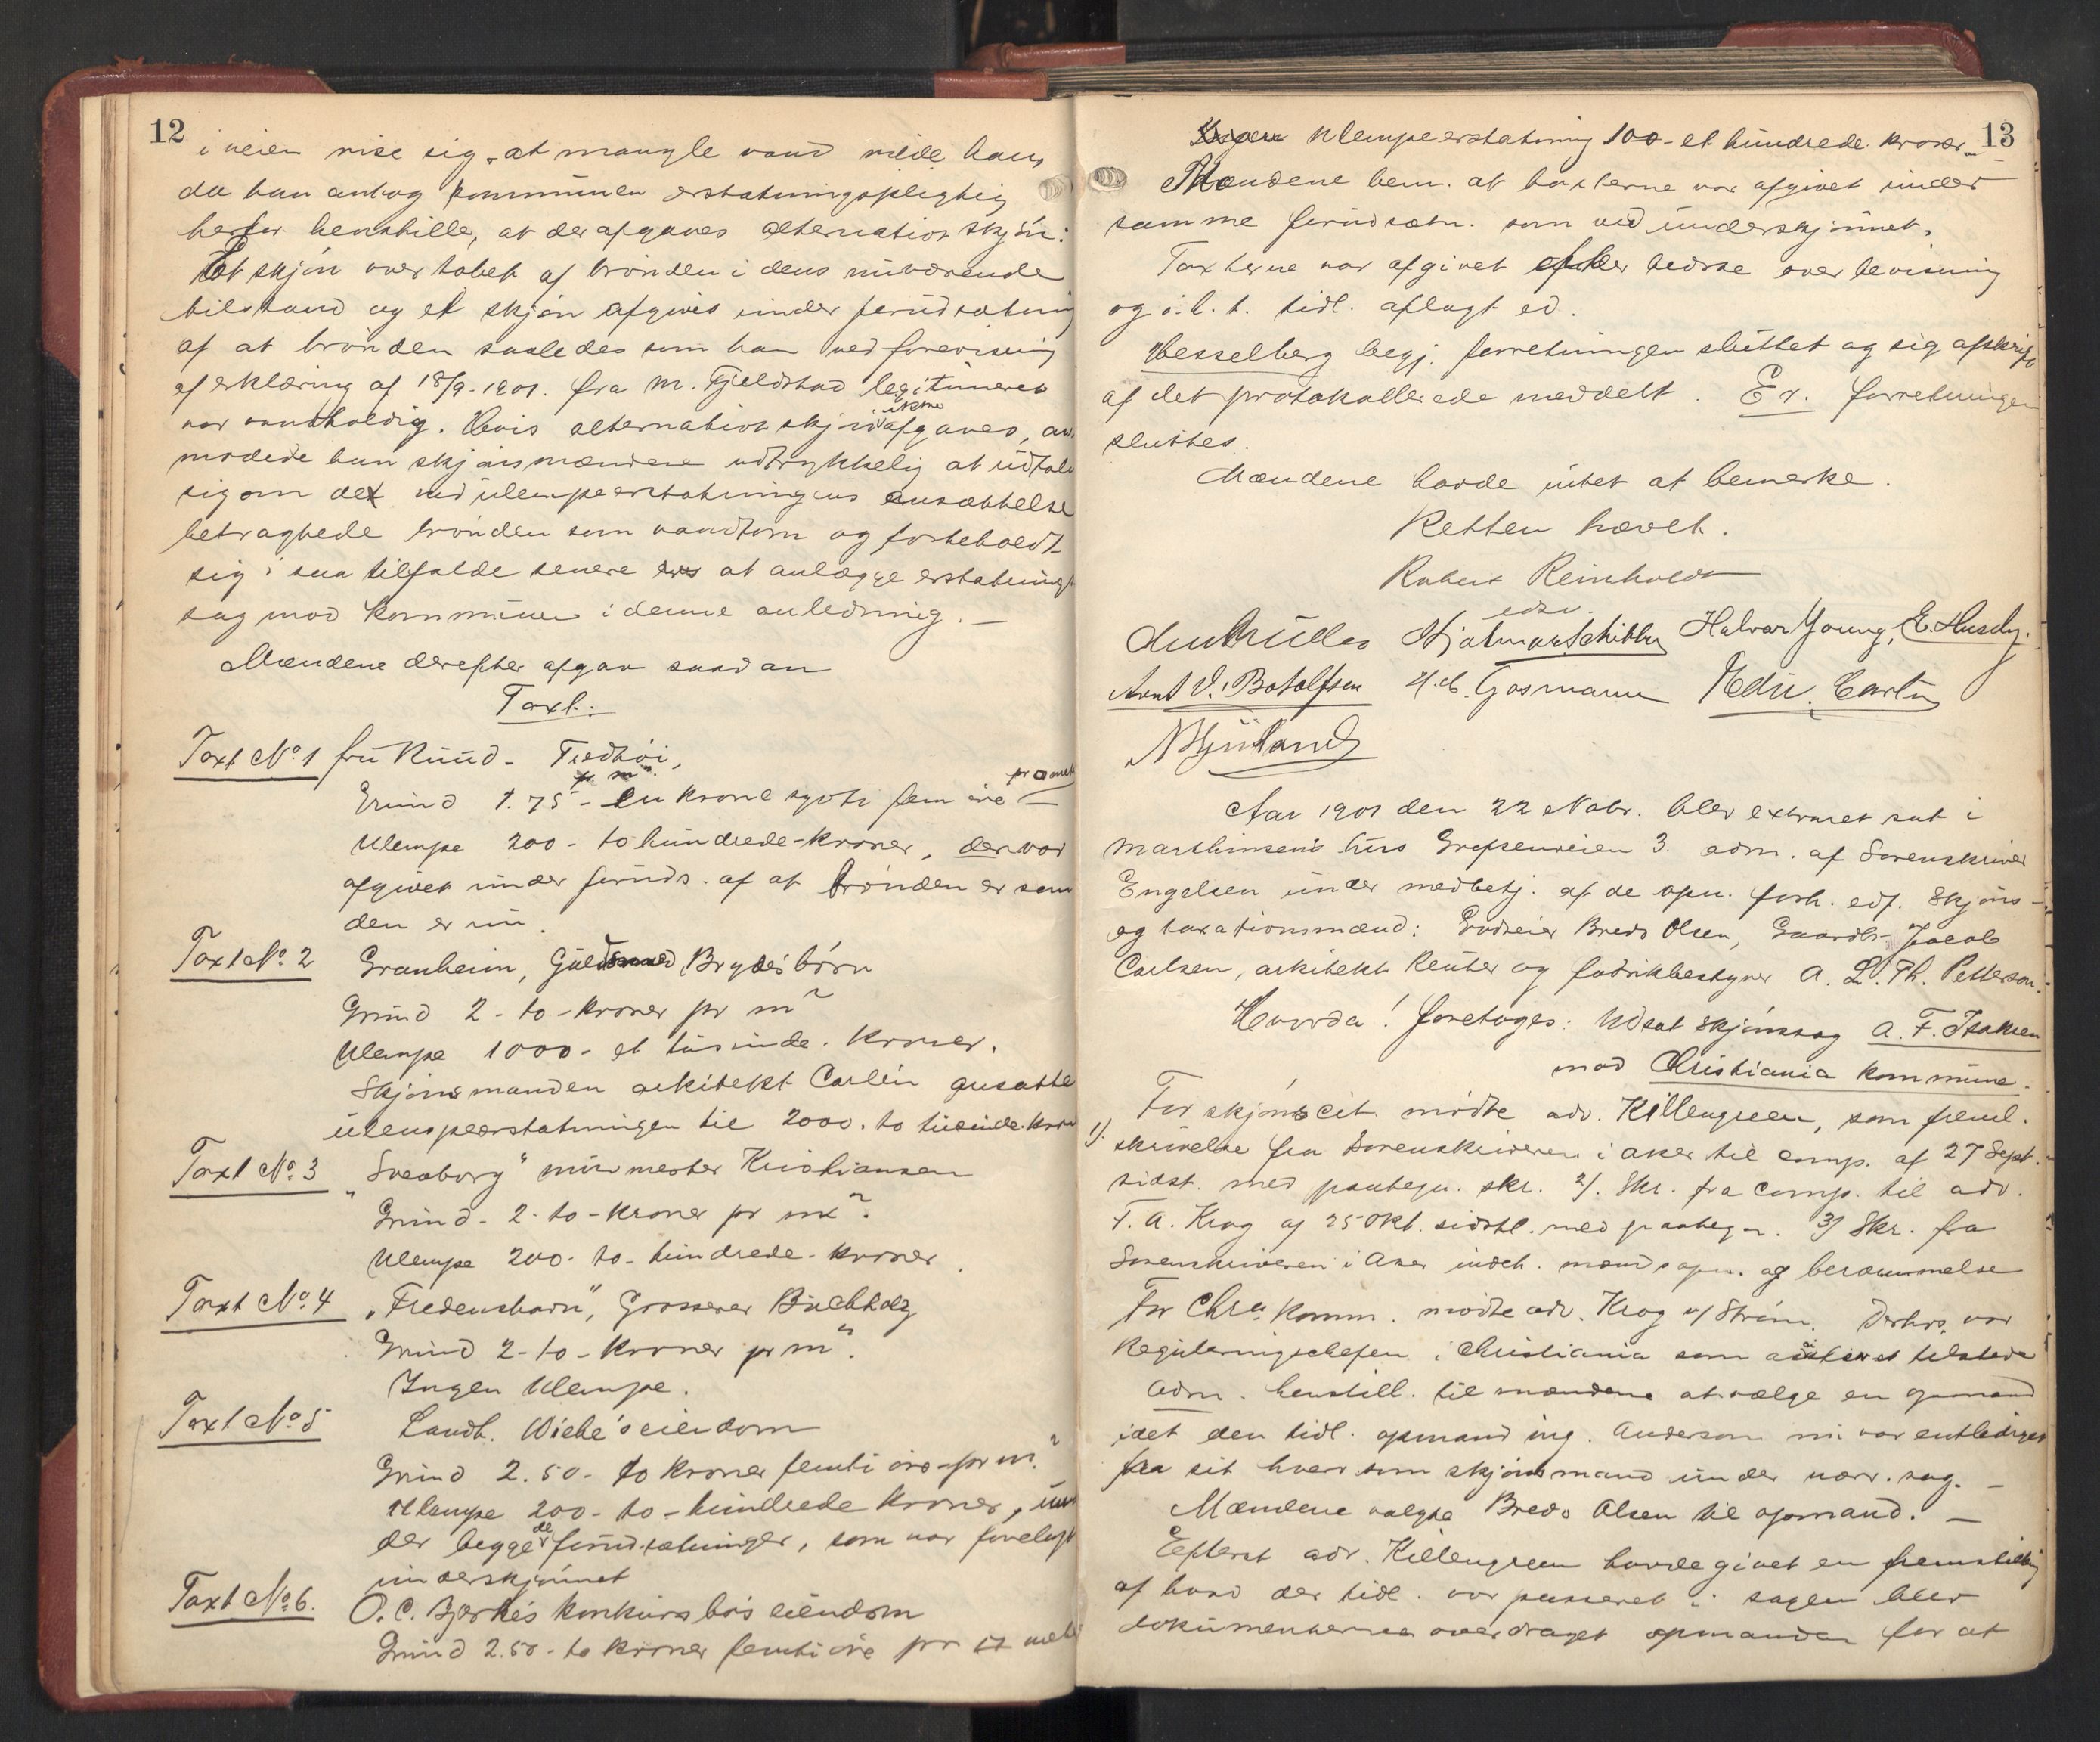 12
i veien vise sig at mangle vand vilde hans
da han antog kommunen erstatningspligtig
herfor henstille, at der afgaves alternativt skjøn:
Et skjøn over tabet af brønden i dens nuværende
tilstand og et skjøn afgives under forudsætning
af at brønden saaledes som han ved forevisning
af erklæring af 18/9-1901. fra M. Fjeldstad legitimeret
var vandholdig. Hvis alternativt skjøn ikke afgaves, an-
modede han skjønsmændene udtrykkelig at udtale
sig om det ved ulempeerstatningens ansættelse
betragtede brønden som vandtom og forbeholdt
sig i saa tilfælde senere at anlægge erstatnings
sag mod kommunen i denne anledning. —
Mændene derefter afgav saadan
Taxt:
Taxt No. 1 fru Ruud - Fredhøi,
Grund 1.75 - en krone sytti fem øre pr m². —
Ulempe 200 - to hundrede - kroner, der var
afgivet under foruds. af at brønden er som
den er nu.
Taxt No. 2 Granheim, Guldsmed Brydes børn
Grund 2 - to - kroner pr m²
Ulempe 1000 - et tusinde. kroner.
Skjønsmanden arkitekt Carlén ansatte
ulempeerstatningen til 2000. to tusinde. kroner
Taxt No. 3 „Sveaborg" murmester Kristiansen
Grund - 2 - to - kroner pr m².
Ulempe 200 - to - hundrede - kroner.
Taxt No. 4 „Fredensborn", Grosserer Buchholz
Grund 2 - to - kroner pr m².
Ingen Ulempe.
Taxt No. 5 Landh. Wiche's eiendom
Grund 2.50 - to kroner femti øre - pr m².
Ulempe 200 - to - hundrede kroner, un-
der begge de forudsætninger, som var forelagt
underskjønnet
Taxt No. 6. O. C. Bjerke's konkursbo's eiendom
Grund 2.50 - to kroner femti øre pr □ meter
13
Ulempeerstatning 100 - et hundrede kroner. —
Mændene bem. at taxterne var afgivet under
samme forudsætn. som ved underskjønnet.
Taxterne var afgivet efter bedste overbevisning
og i. h. t. tidl. aflagt ed.
Hesselberg begj. forretningen sluttet og sig afskrift
af det protokollerede meddelt. Er. forretningen
sluttes.
Mændene havde intet at bemerke.
Retten hævet.
Robert Reinholdt
edsv.
Hjalmar Schibby Halvor Young, E. Huseby.
Arnt V. Botolfsen Gosmann Edv. Carlén
Aar 1901 den 22 Nobr. blev extraret sat i
Marthinsens hus Grefsenveien 3. adm. af Sorenskriver
Engelsen under medbetj. af de opn. forh. edf. skjøns-
og taxationsmænd: Godseier Bredo Olsen, Gaardb. Jacob
Carlsen, arkitekt Reuter og fabrikbestyrer A. L. Th. Petterson.
Hvorda! foretoges: Udsat skjønssag A. F. Isaksen
mod Christiania kommune.
For skjønscit. mødte adv. Killengreen, som freml.
1/. skrivelse fra Sorenskriveren i Aker til comp. af 27 Sept.
sidst. med paategn. skr. 2/. Skr. fra comp. til adv.
F. A. Krog af 25 Okt. sidstl. med paategn. 3/ Skr. fra
Sorenskriveren i Aker indeh. mænds opn. og berammelse
For Chra. komm. mødte adv. Krog v/ Strøm. Derhos var
Reguleringschefen i Christiania som tilstede
Adm. henstill. til mændene at vælge en opmand
idet den tidl. opmand ing. Anderson nu var entlediget
fra sit hverv som skjønsmand under nærv. sag. —
Mændene valgte Bredo Olsen til opmand. —
Efterat adv. Killengreen havde givet en fremstilling
af hvad der tidl. var passeret i sagen blev
dokumenterne overdraget opmanden for at